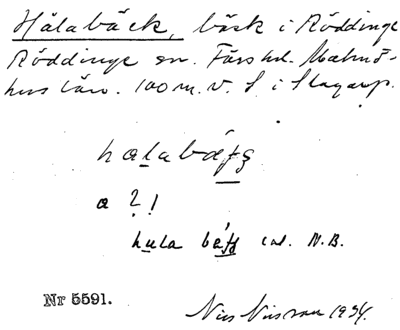 Hålabäck, bäck i Röddinge
Röddinge sn. Färs hd. Malmö-
hus län. 100 m. v. S i Slagarp.
halabä
a ? !
hula  N.B.
Nr 5591.
Nils Nilsson 1934.